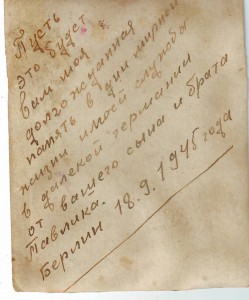 Пусть
это будет
вам мой
долгожданная
память в дни мирной
жизни и моей службы
в далекой германии
от вашего сына и брата
Павлика.
Берлин 18.9.1945 года